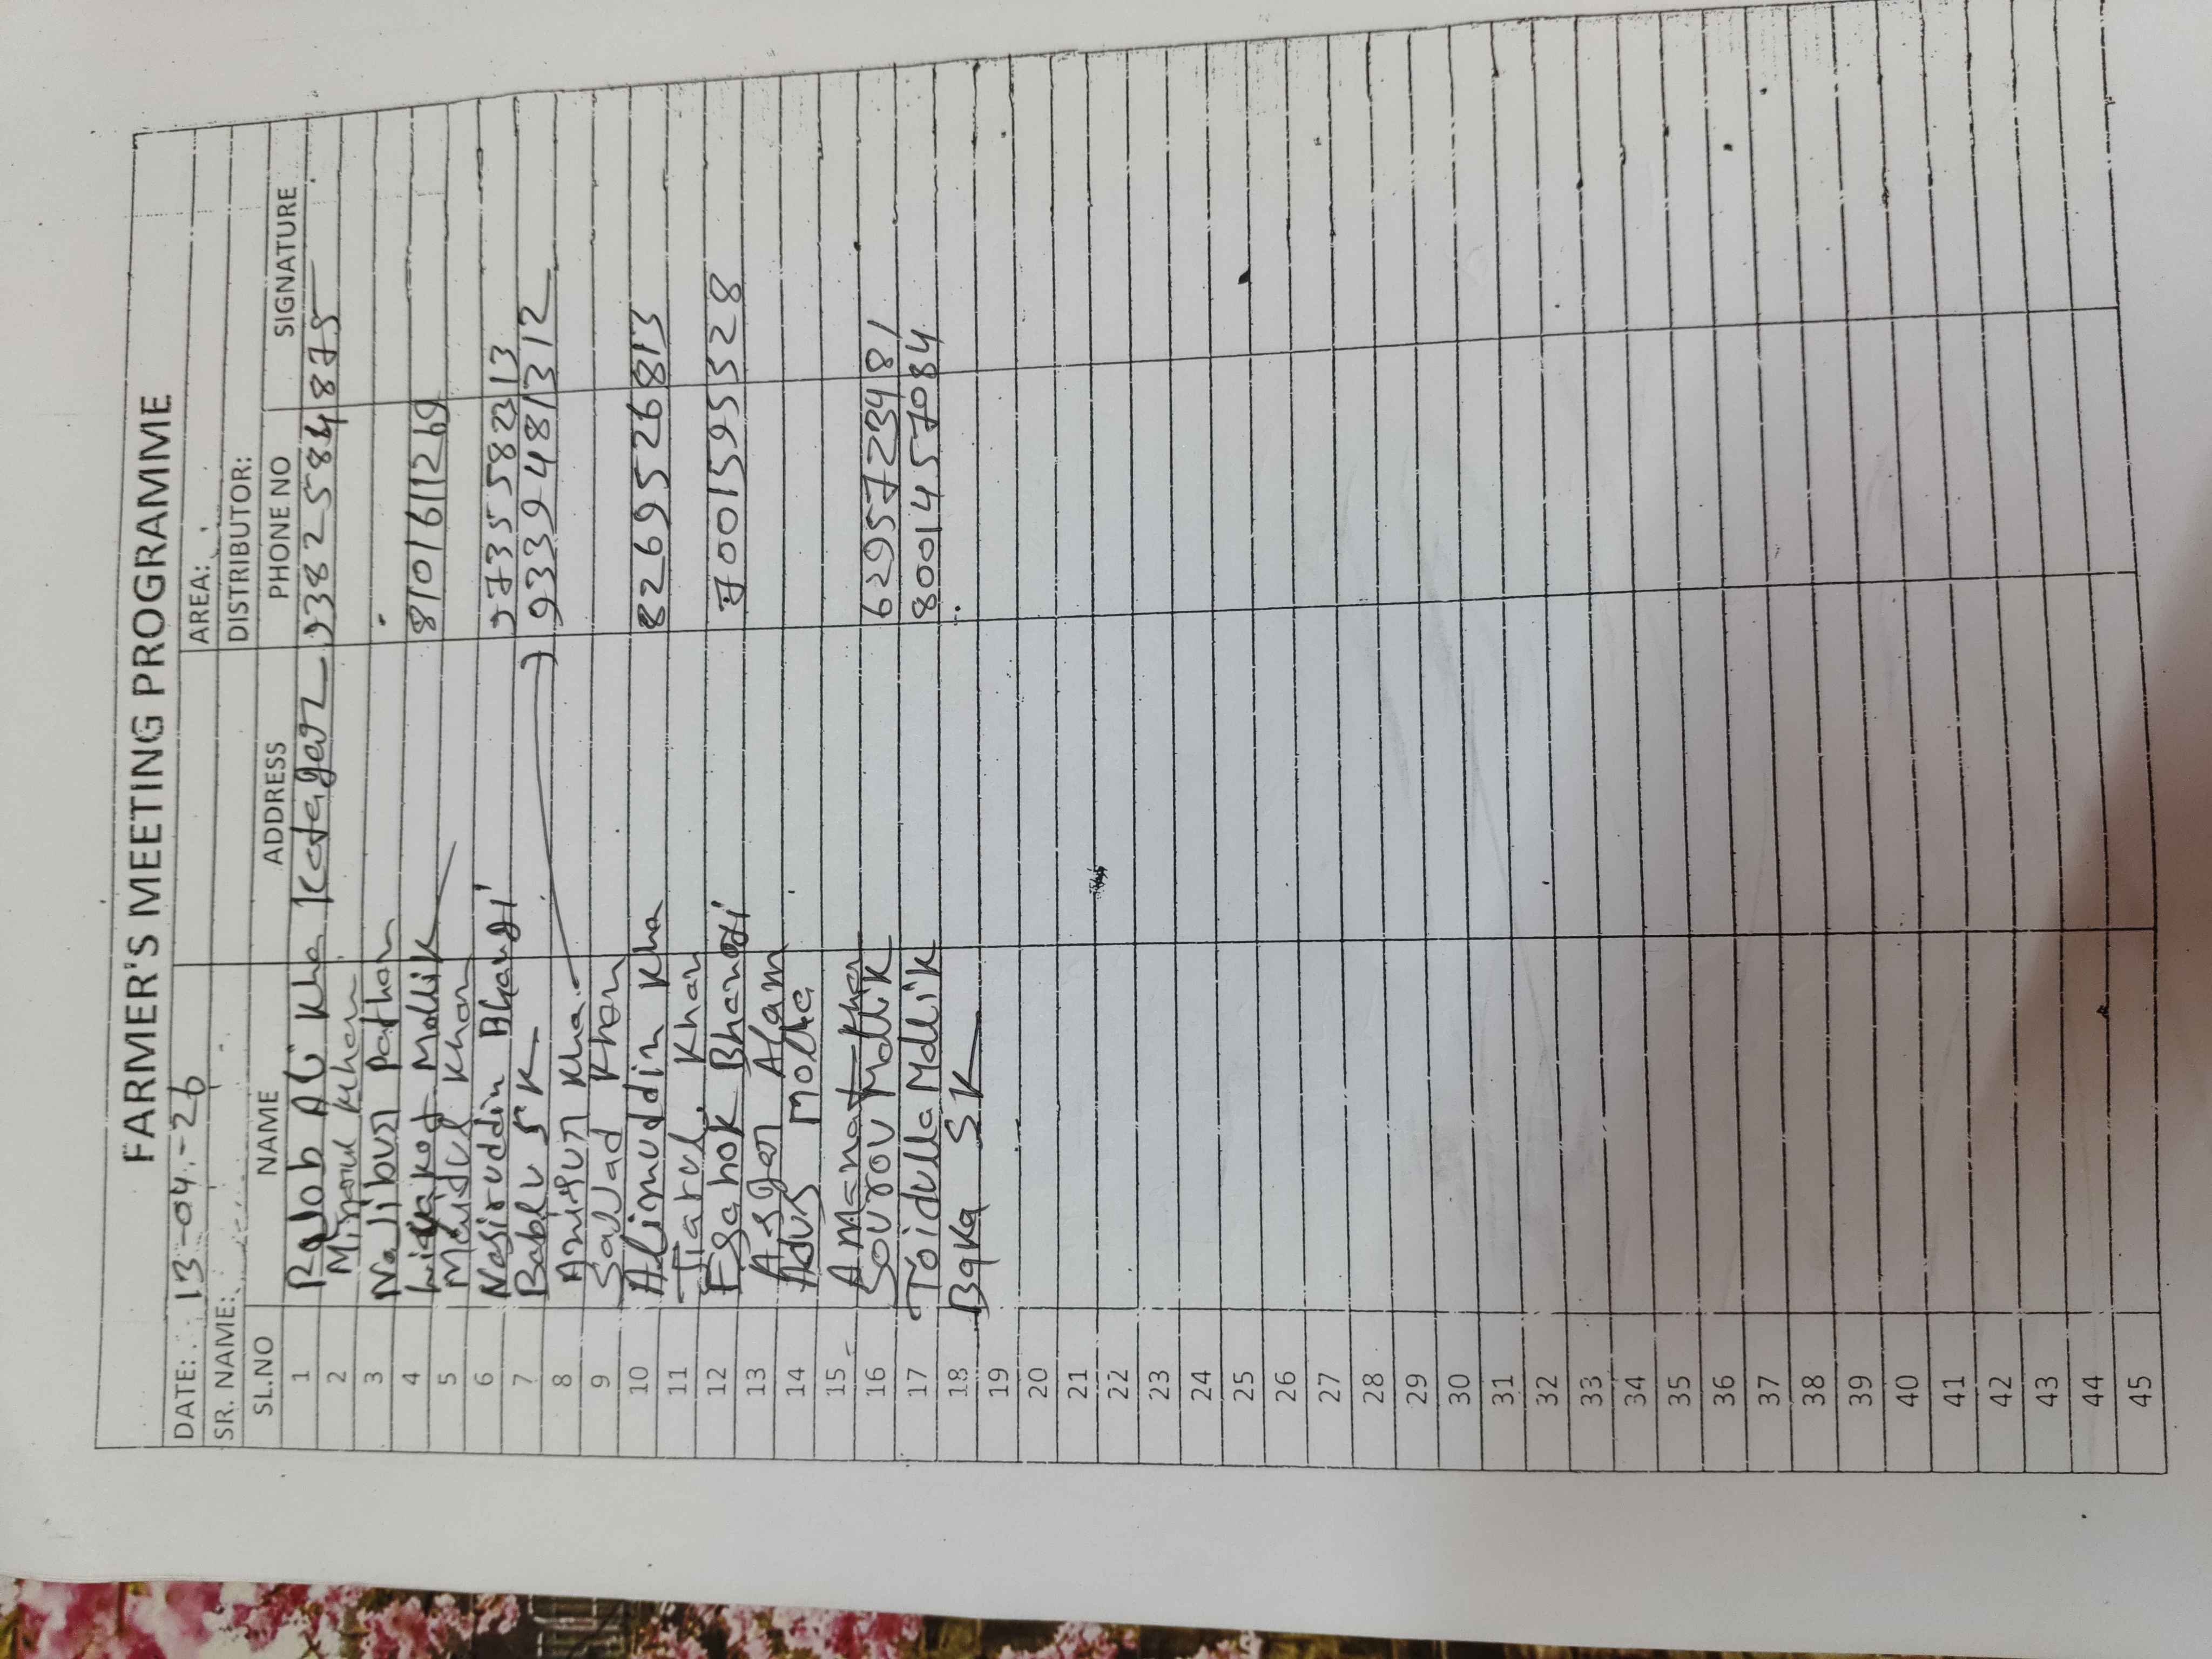 FARMER'S MEETING PROGRAMME
DATE: 13-04-26 AREA:
SR. NAME: DISTRIBUTOR:
SL.NO NAME ADDRESS PHONE NO SIGNATURE
1 Rajob Ali Kha Ketager 9382584875
2 Minarul Khan
3 Najibur Pathan
4 Liayakot Mallik 8101611269
5 Maidul Khan
6 Nasiruddin Bhangi 9735582313
7 Bablu SK 9339481312
8 Anisur Kha
9 Sajjad Khan
10 Alimuddin Kha 8269526813
11 Jiarul Khan
12 Esahok Bhangi 7001595328
13 Asgar Alam
14 Molla
15
16 Amanat Khan 6295723481
17 Sourov Mallik 8001457084
18 Toidulla Mallik
19 Baka SK
20
21
22
23
24
25
26
27
28
29
30
31
32
33
34
35
36
37
38
39
40
41
42
43
44
45